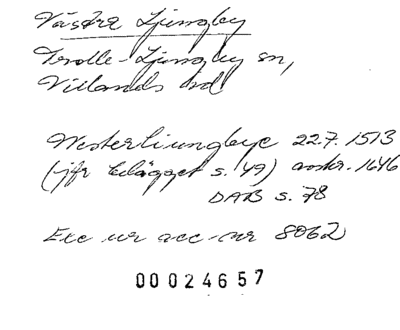 Västra Ljungby
Trolle-Ljungby sn,
Villands hd
Westerliungbye 22.7. 1513
(jfr belägget s. 49) avskr. 1646
DAB s. 78
Exc ur acc-nr 8062
00024657